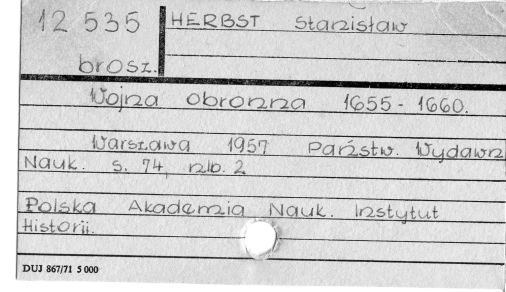 12 535 HERBST Stanisław
brosz.
Wojna obronna 1655 - 1660.
Warszawa 1957 Państw. Wydawn
Nauk. s. 74, nlb. 2
Polska Akademia Nauk. Instytut
Historii.
DUJ 867/71 5 000